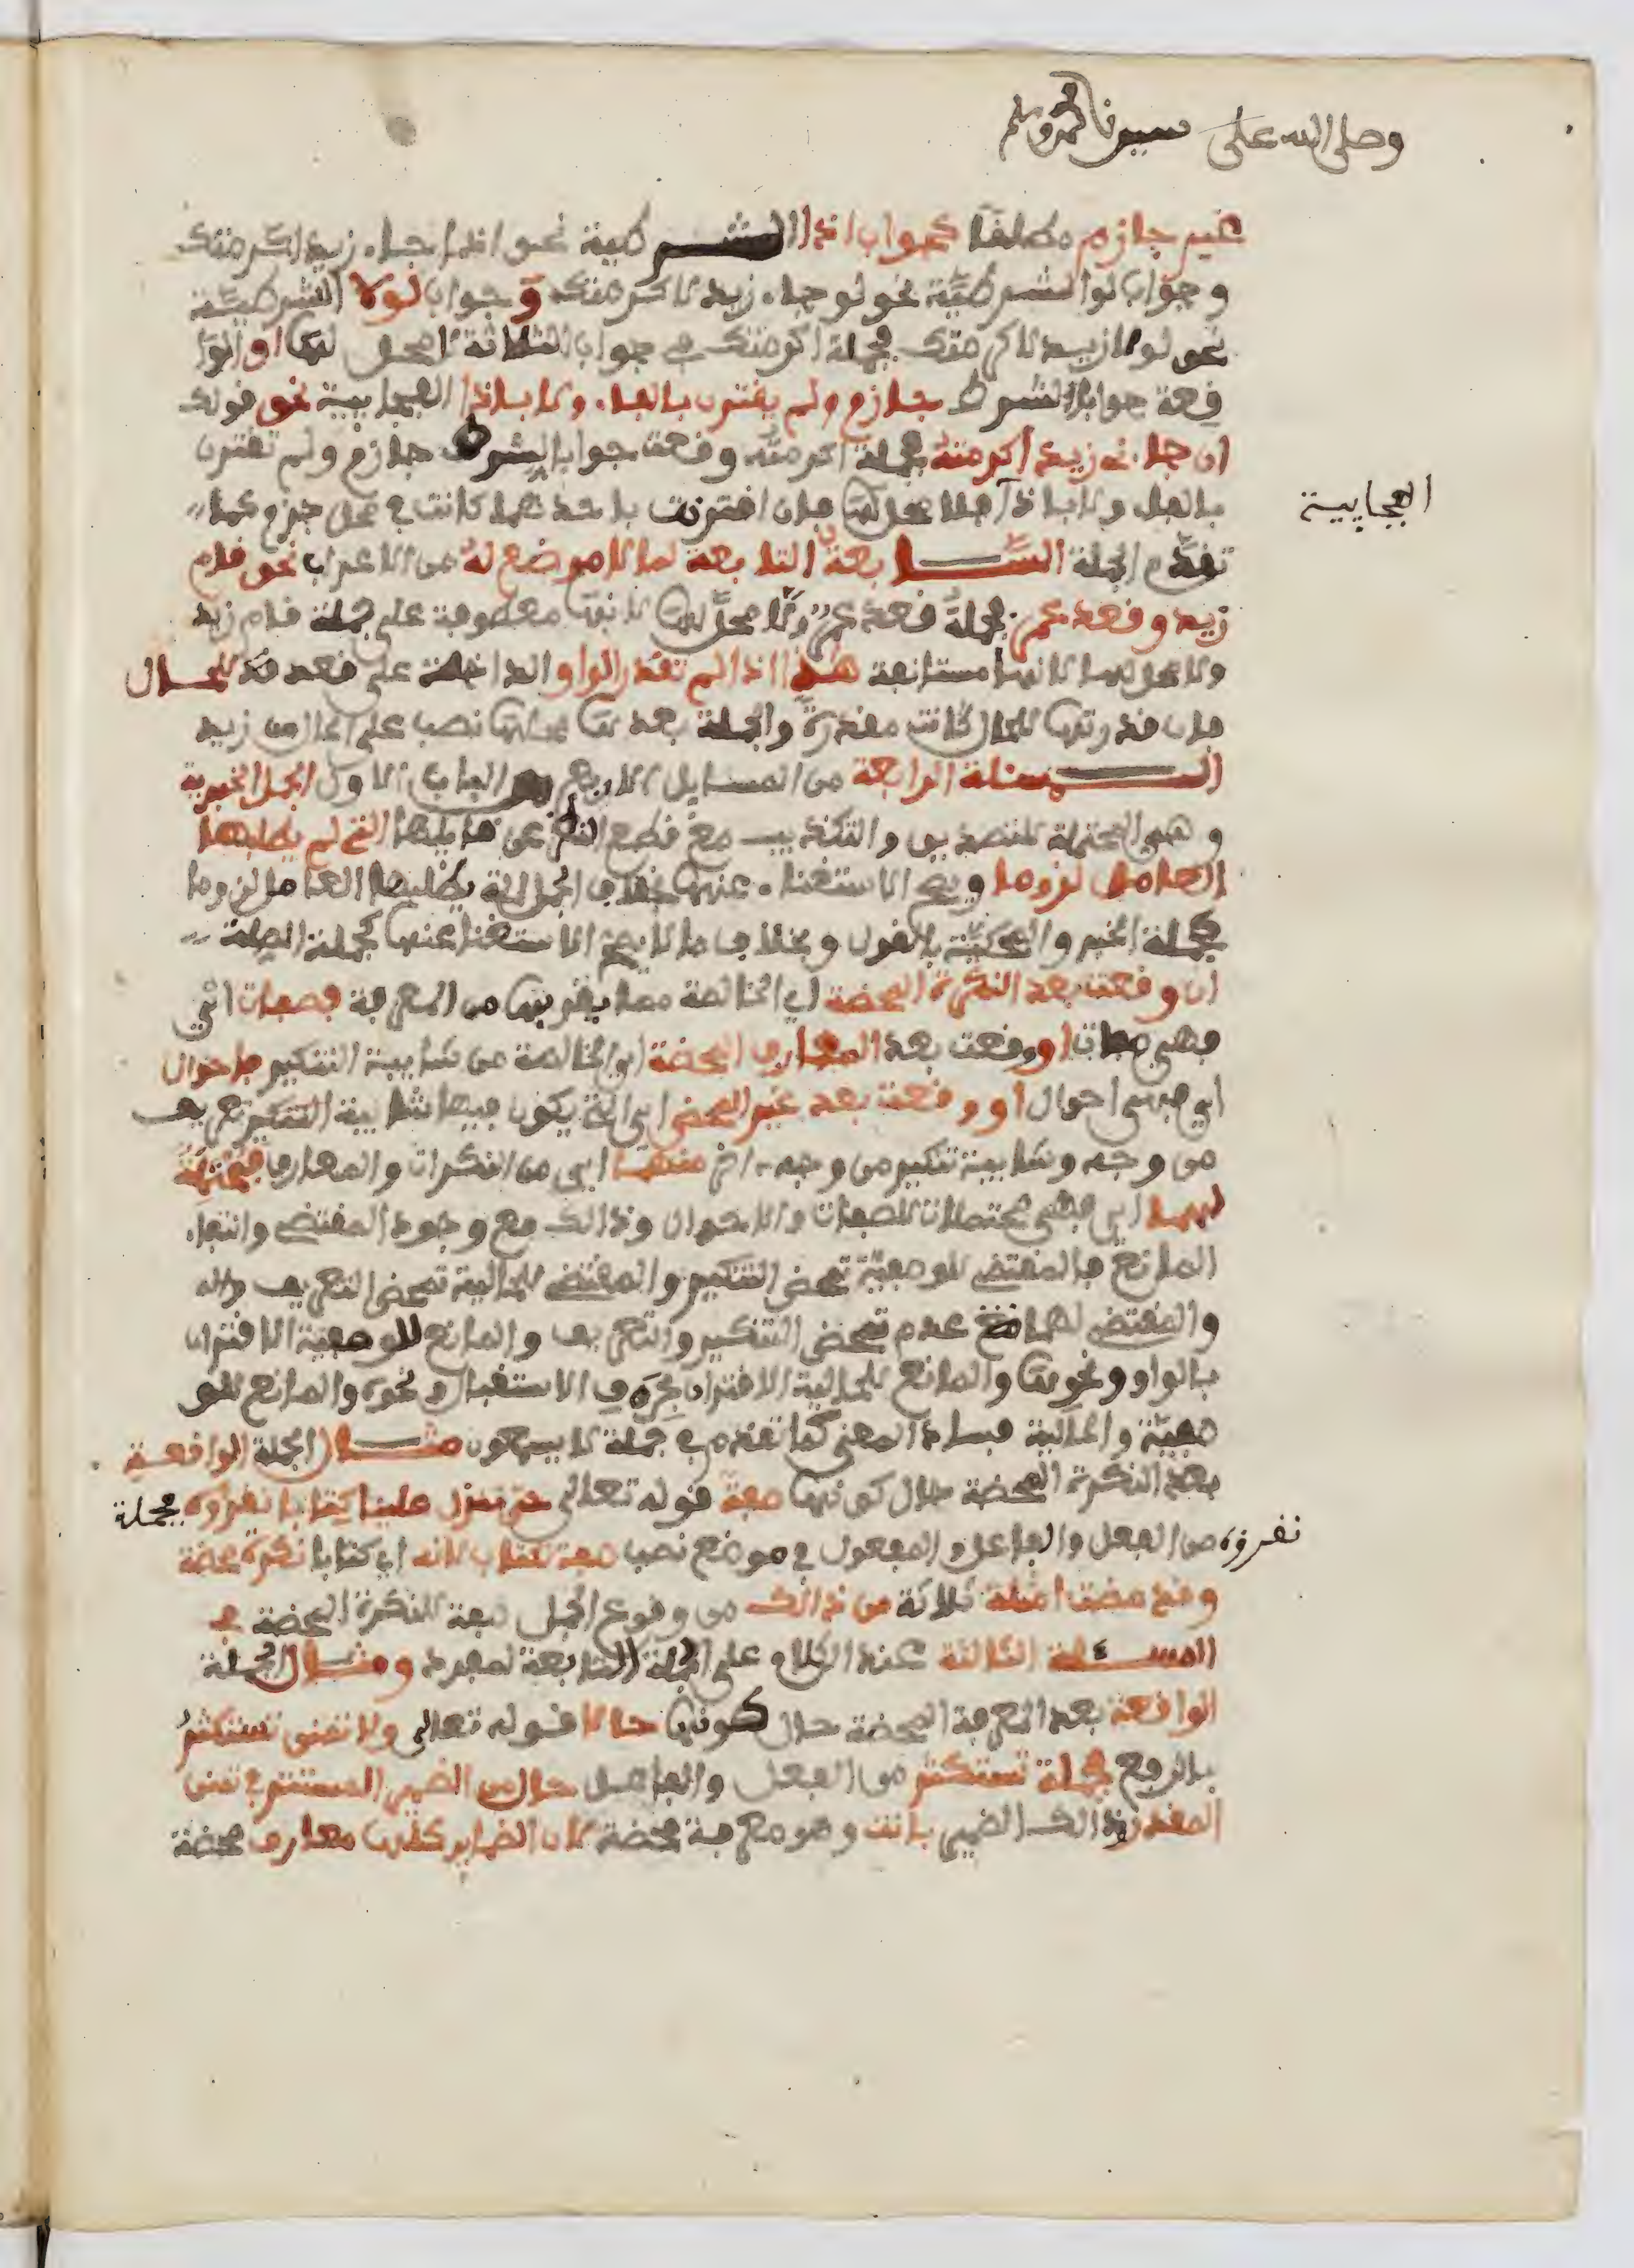 وصلى الله على سيدنا محمد وسلم
غير جازم مطلقا كجواب اذا الشرطية نحو اذا جاء زيد اكرمتك
وجواب لو الشرطية نحو لو جاء زيد لاكرمتك وجواب لولا الشرطية
نحو لولا زيد لاكرمتك فجملة اكرمتك في جواب الثلاثة لا محل لها او الوا
قعة جوابا لشرط جازم ولم يقترن بالفاء ولا باذا الفجايية نحو قولك
ان جاءني زيد اكرمته فجملة اكرمته وقعت جوابا لشرط جازم ولم تقترن
بالفاء ولا باذا فلا محل لها فان اقترنت باحدهما كانت في محل جزم كما
الفجايية
تقدم الجملة السابعة التابعة لما لا موضع له من الاعراب نحو قام
زيد وقعد عمر فجملة قعد عمر ولا محل لها لانها معطوفة على جملة قام زيد
ولا محل لها لانها مستانفة هذا اذا لم تقدر الواو الداخلة على قعد قد للحال
فان قدرتها للحال كانت مقدرة والجملة بعدها محلها نصب على الحال من زيد
المسئلة الرابعة من المسايل الاربع من الباب الاول الجمل الخبرية
وهي المحتملة للتصديق والتكذيب مع قطع النظر عن قايلها التي لم يطلبها
العامل لزوما ويصح الاستغناء عنها بخلاف الجمل التي يطلبها العامل لزوما
كجملة الخبر والمحكية بالقول وبخلاف ما لا يصح الاستغنا عنها كجملة الصلة
ان وقعت بعد النكرة المحضة اي الخالصة مما يقربها من المعرفة فصفات اي
فهي صفات او وقعت بعد المعارف المحضة اي الخالصة من شايبة التنكير فاحوال
اي فهي احوال او وقعت بعد غير المحض اي الذي يكون فيها شايبة التنكير تعريف
من وجه وشايبة تنكير من وجه اخر منهما اي من النكرات والمعارف فمحتملة
لهما اي فهي محتملات للصفات والاحوال وذالك مع وجود المقتضي وانتفاء
المانع فالمقتضي للوصفية تمحض التنكير والمقتضي للحالية تمحض التعريف
والمقتضي لهما عدم تمحض التنكير والتعريف والمانع للوصفية الاقتران
بالواو ونحوها والمانع للحالية الاقتران بحرف الاستقبال ونحوه والمانع للو
صفية والحالية فساد المعنى كما تقدم في جملة لا يسمعون مثال الجملة الواقعة
بعد النكرة المحضة حال كونها صفة قوله تعالى حتى تنزل علينا كتابا نقروه فجملة
نقروه من الفعل والفاعل والمفعول في موضع نصب صفة لكتاب لانه اي كتابا نكرة محضة
وقد مضت امثلة ثلاثة من ذالك من وقوع الجمل صفة للنكرة المحضة في
المسئلة الثالثة عند الكلام على الجملة التابعة لمفرد ومثال الجملة
الواقعة بعد المعرفة المحضة حال كونها حالا قوله تعالى ولا تمنن تستكثر
بالرفع فجملة تستكثر من الفعل والفاعل حال من الضمير المستتر في تمنن
المقدر ذالك الضمير بانت وهو معرفة محضة لان الضماير كلها معارف محضة